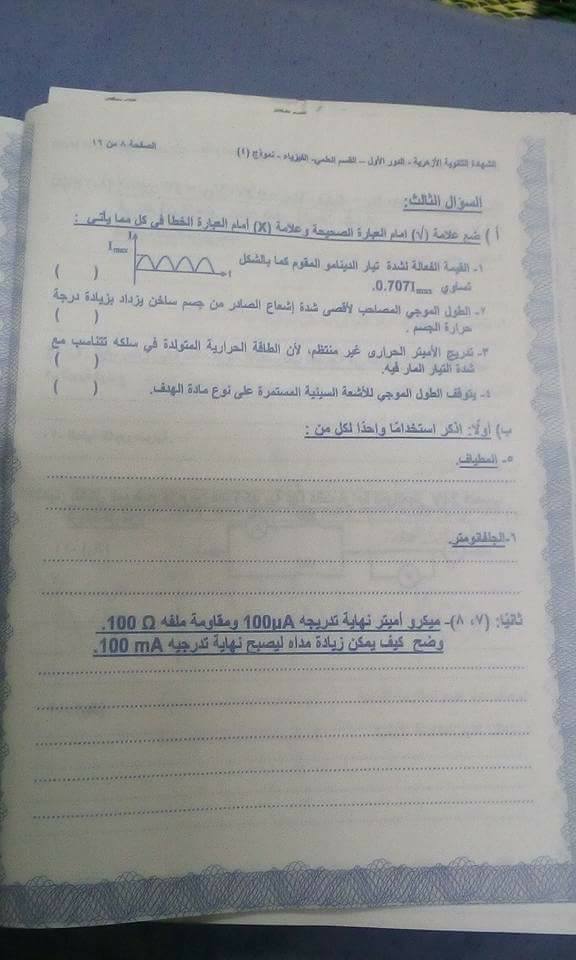 الشهادة الثانوية الأزهرية - الدور الأول - القسم العلمي - الفيزياء - نموذج (٤)
الصفحة ٨ من ١٦
السؤال الثالث:
أ ) ضع علامة (√) أمام العبارة الصحيحة وعلامة (X) أمام العبارة الخطأ في كل مما يأتي :
١- القيمة الفعالة لشدة تيار الدينامو المقوم كما بالشكل
I
Imax
t
تساوي 0.707Imax. ( )
٢- الطول الموجي المصاحب لأقصى شدة إشعاع الصادر من جسم ساخن يزداد بزيادة درجة
حرارة الجسم . ( )
٣- تدريج الأميتر الحراري غير منتظم، لأن الطاقة الحرارية المتولدة في سلكه تتناسب مع
شدة التيار المار فيه. ( )
٤- يتوقف الطول الموجي للأشعة السينية المستمرة على نوع مادة الهدف. ( )
ب) أولًا: اذكر استخدامًا واحدًا لكل من :
٥- المطياف.
٦-الجلفانومتر.
ثانيًا: (٧، ٨)- ميكرو أميتر نهاية تدريجه 100µA ومقاومة ملفه 100 Ω.
وضح كيف يمكن زيادة مداه ليصبح نهاية تدرجيه 100 mA.